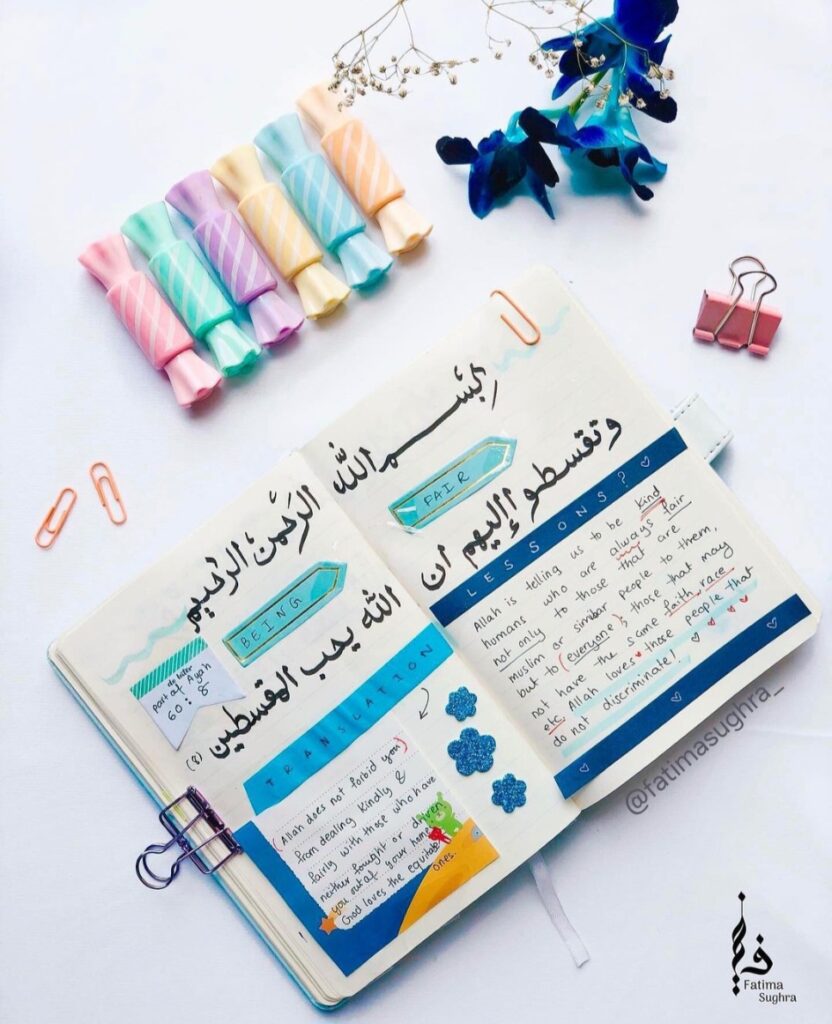 بِسْمِ الله
الرَّحْمَنِ الرَّحِيمِ
BEING
FAIR
وتقسطوا إليهم ان
الله يحب المقسطين (8)
the later
part of Ayah
60:8
TRANSLATION
(Allah does not forbid you)
from dealing kindly &
fairly with those who have
neither fought or driven
you out of your home.
God loves the equitable
ones.
LESSONS?
Allah is telling us to be kind
humans who are always fair
not only to those that are
muslim or similar people to them,
but to (everyone), those that may
not have the same faith, race
etc. Allah loves those people that
do not discriminate!
@fatimasughra_
Fatima
Sughra